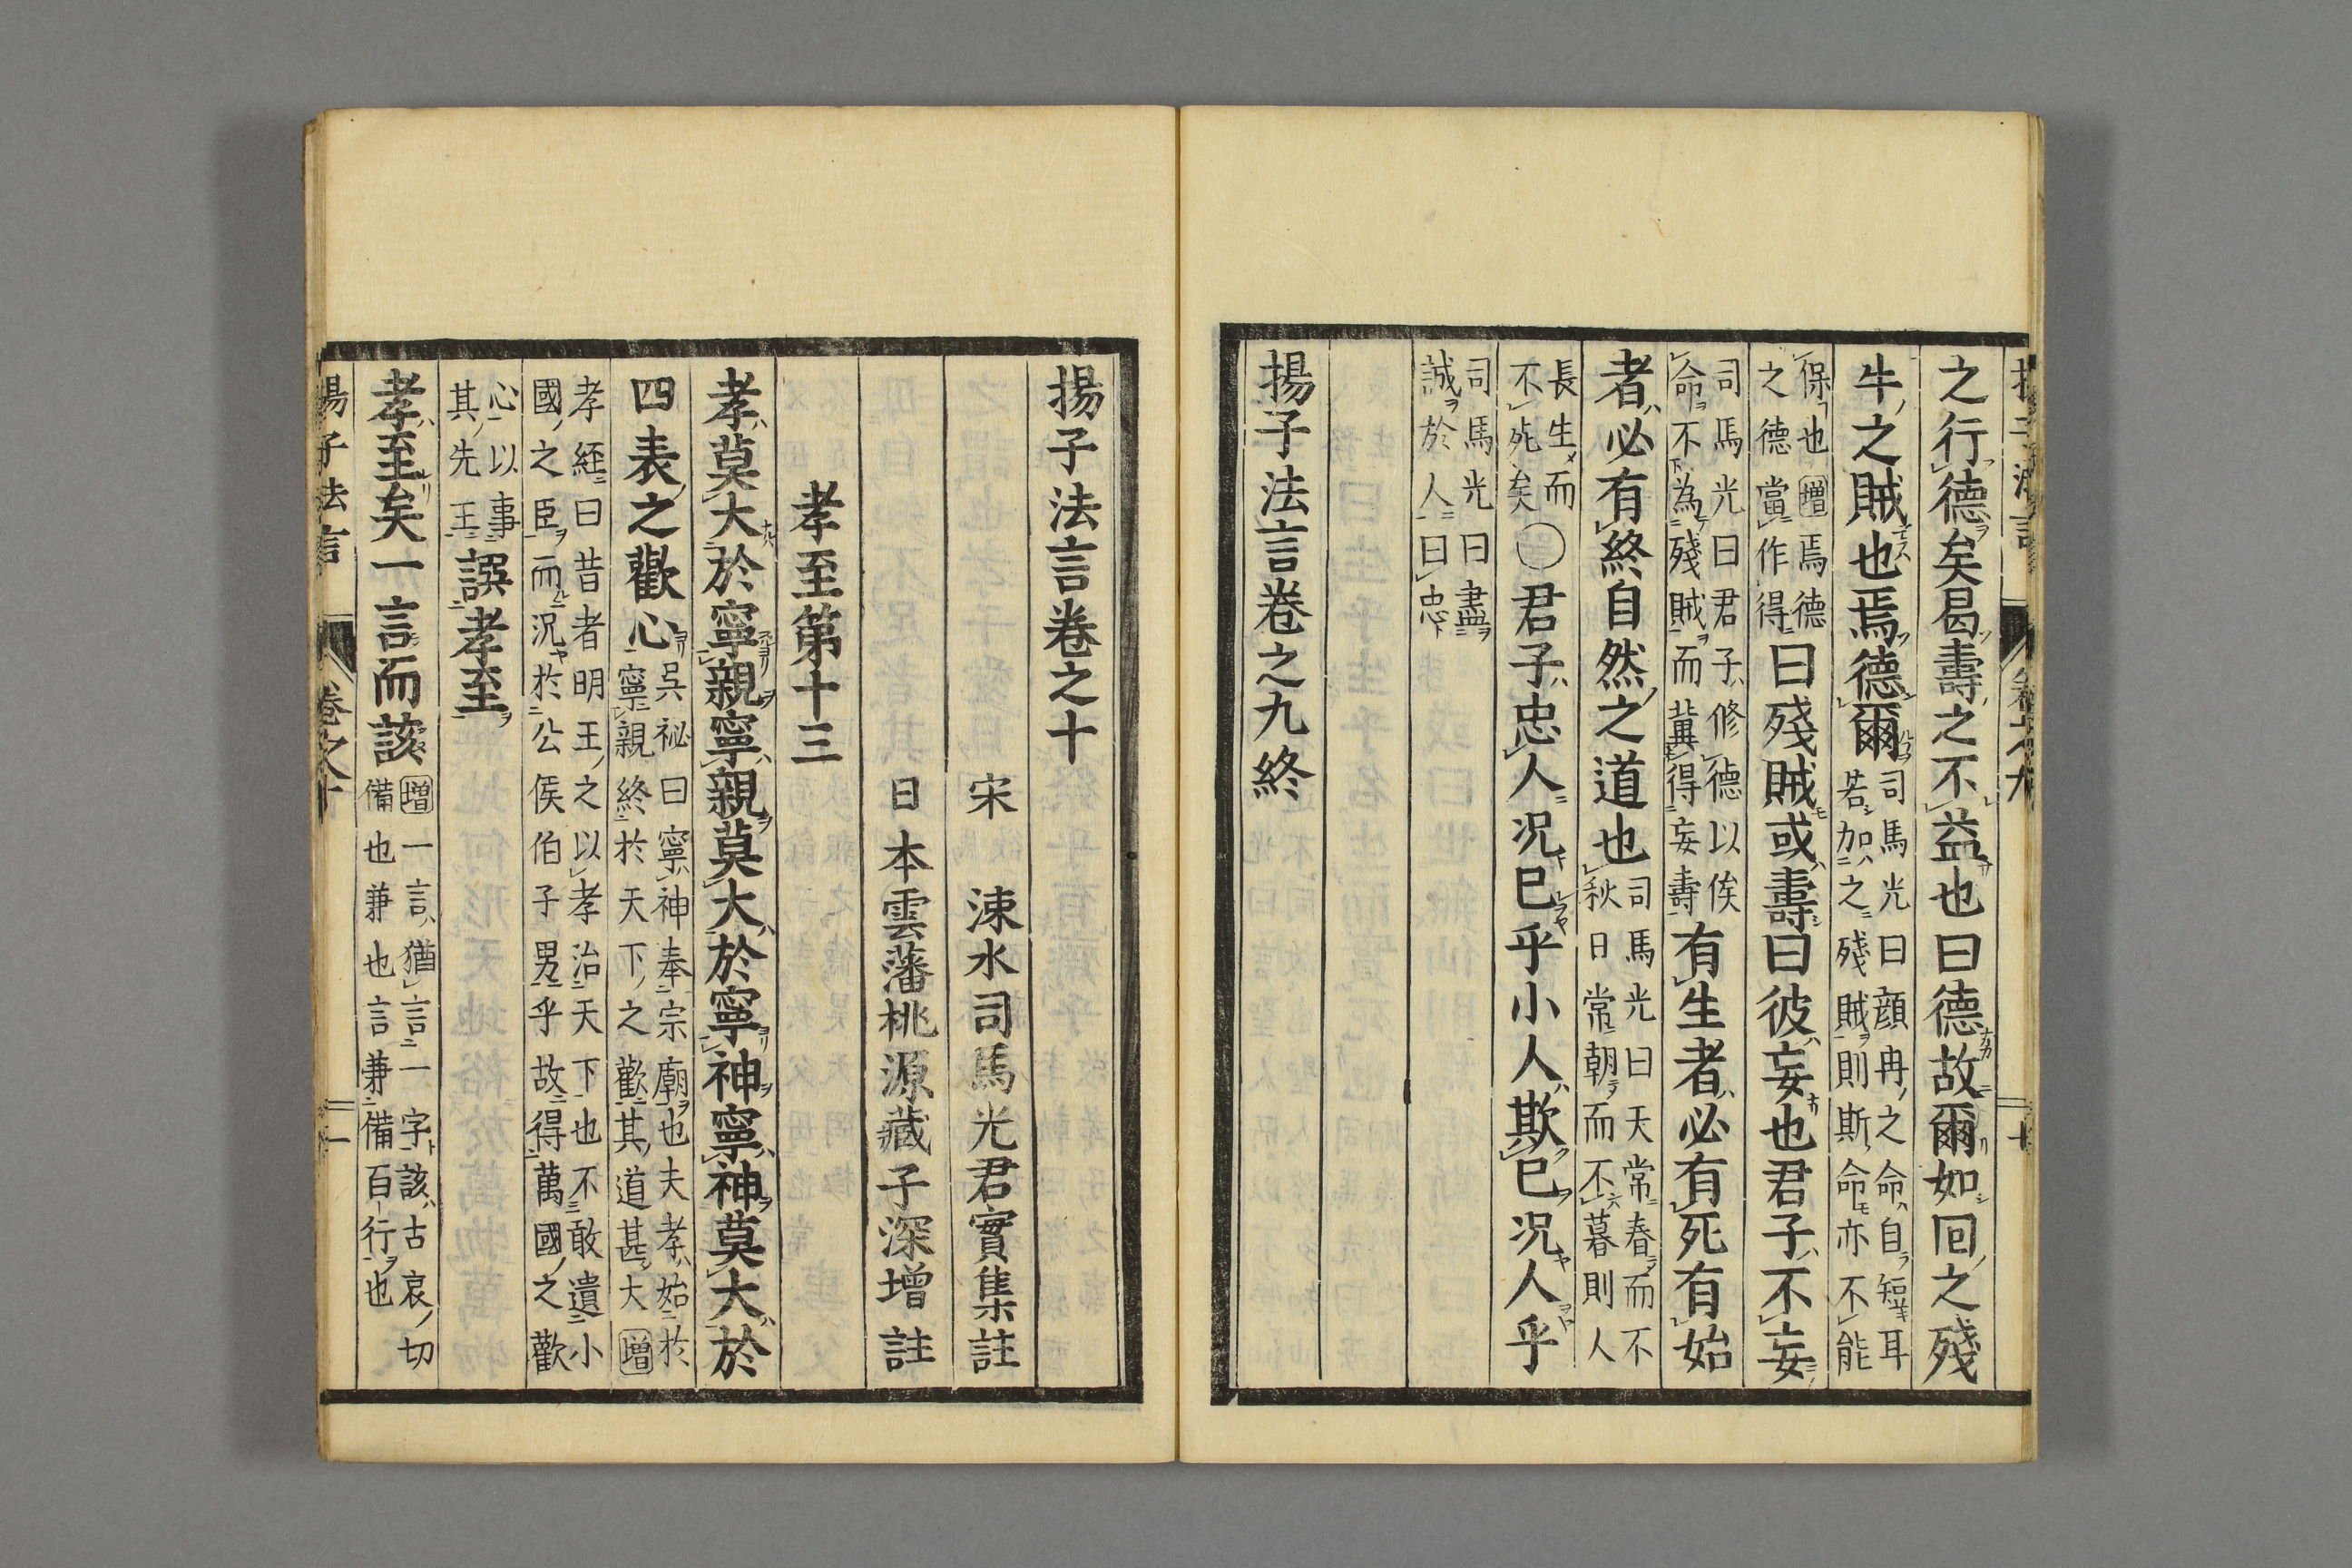 之行德矣曷壽之不益也曰德故爾如回之殘
牛之賊也焉德爾司馬光曰顔冉之命自短耳
若加之殘賊則斯命亦不能
保也增焉德
之德當作得曰殘賊或壽曰彼妄也君子不妄
司馬光曰君子修德以俟
命不為殘賊而冀得妄壽有生者必有死有始
者必有終自然之道也司馬光曰天常春而不
秋日常朝而不暮則人
長生而
不死矣○君子忠人況已乎小人欺已況人乎
司馬光曰盡
誠於人曰忠
揚子法言卷之九終
揚子法言卷之十
宋 涑水司馬光君實集註
日本雲藩桃源藏子深增註
孝至第十三
孝莫大於寧親寧親莫大於寧神寧神莫大於
四表之歡心吳祕曰寧神奉宗廟也夫孝始於
寧親終於天下之歡其道甚大增
孝經曰昔者明王之以孝治天下也不敢遺小
國之臣而況於公侯伯子男乎故得萬國之歡
心以事
其先王譔孝至
孝至矣一言而該增一言猶言一字該古哀切
備也兼也言兼備百行也
揚子法言 卷之十 一